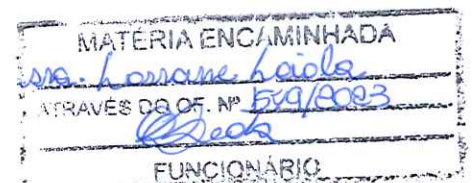 MATÉRIA ENCAMINHADA
sra. Lorrane Loiola
ATRAVÉS DO OF. Nº 549/2023
FUNCIONÁRIO